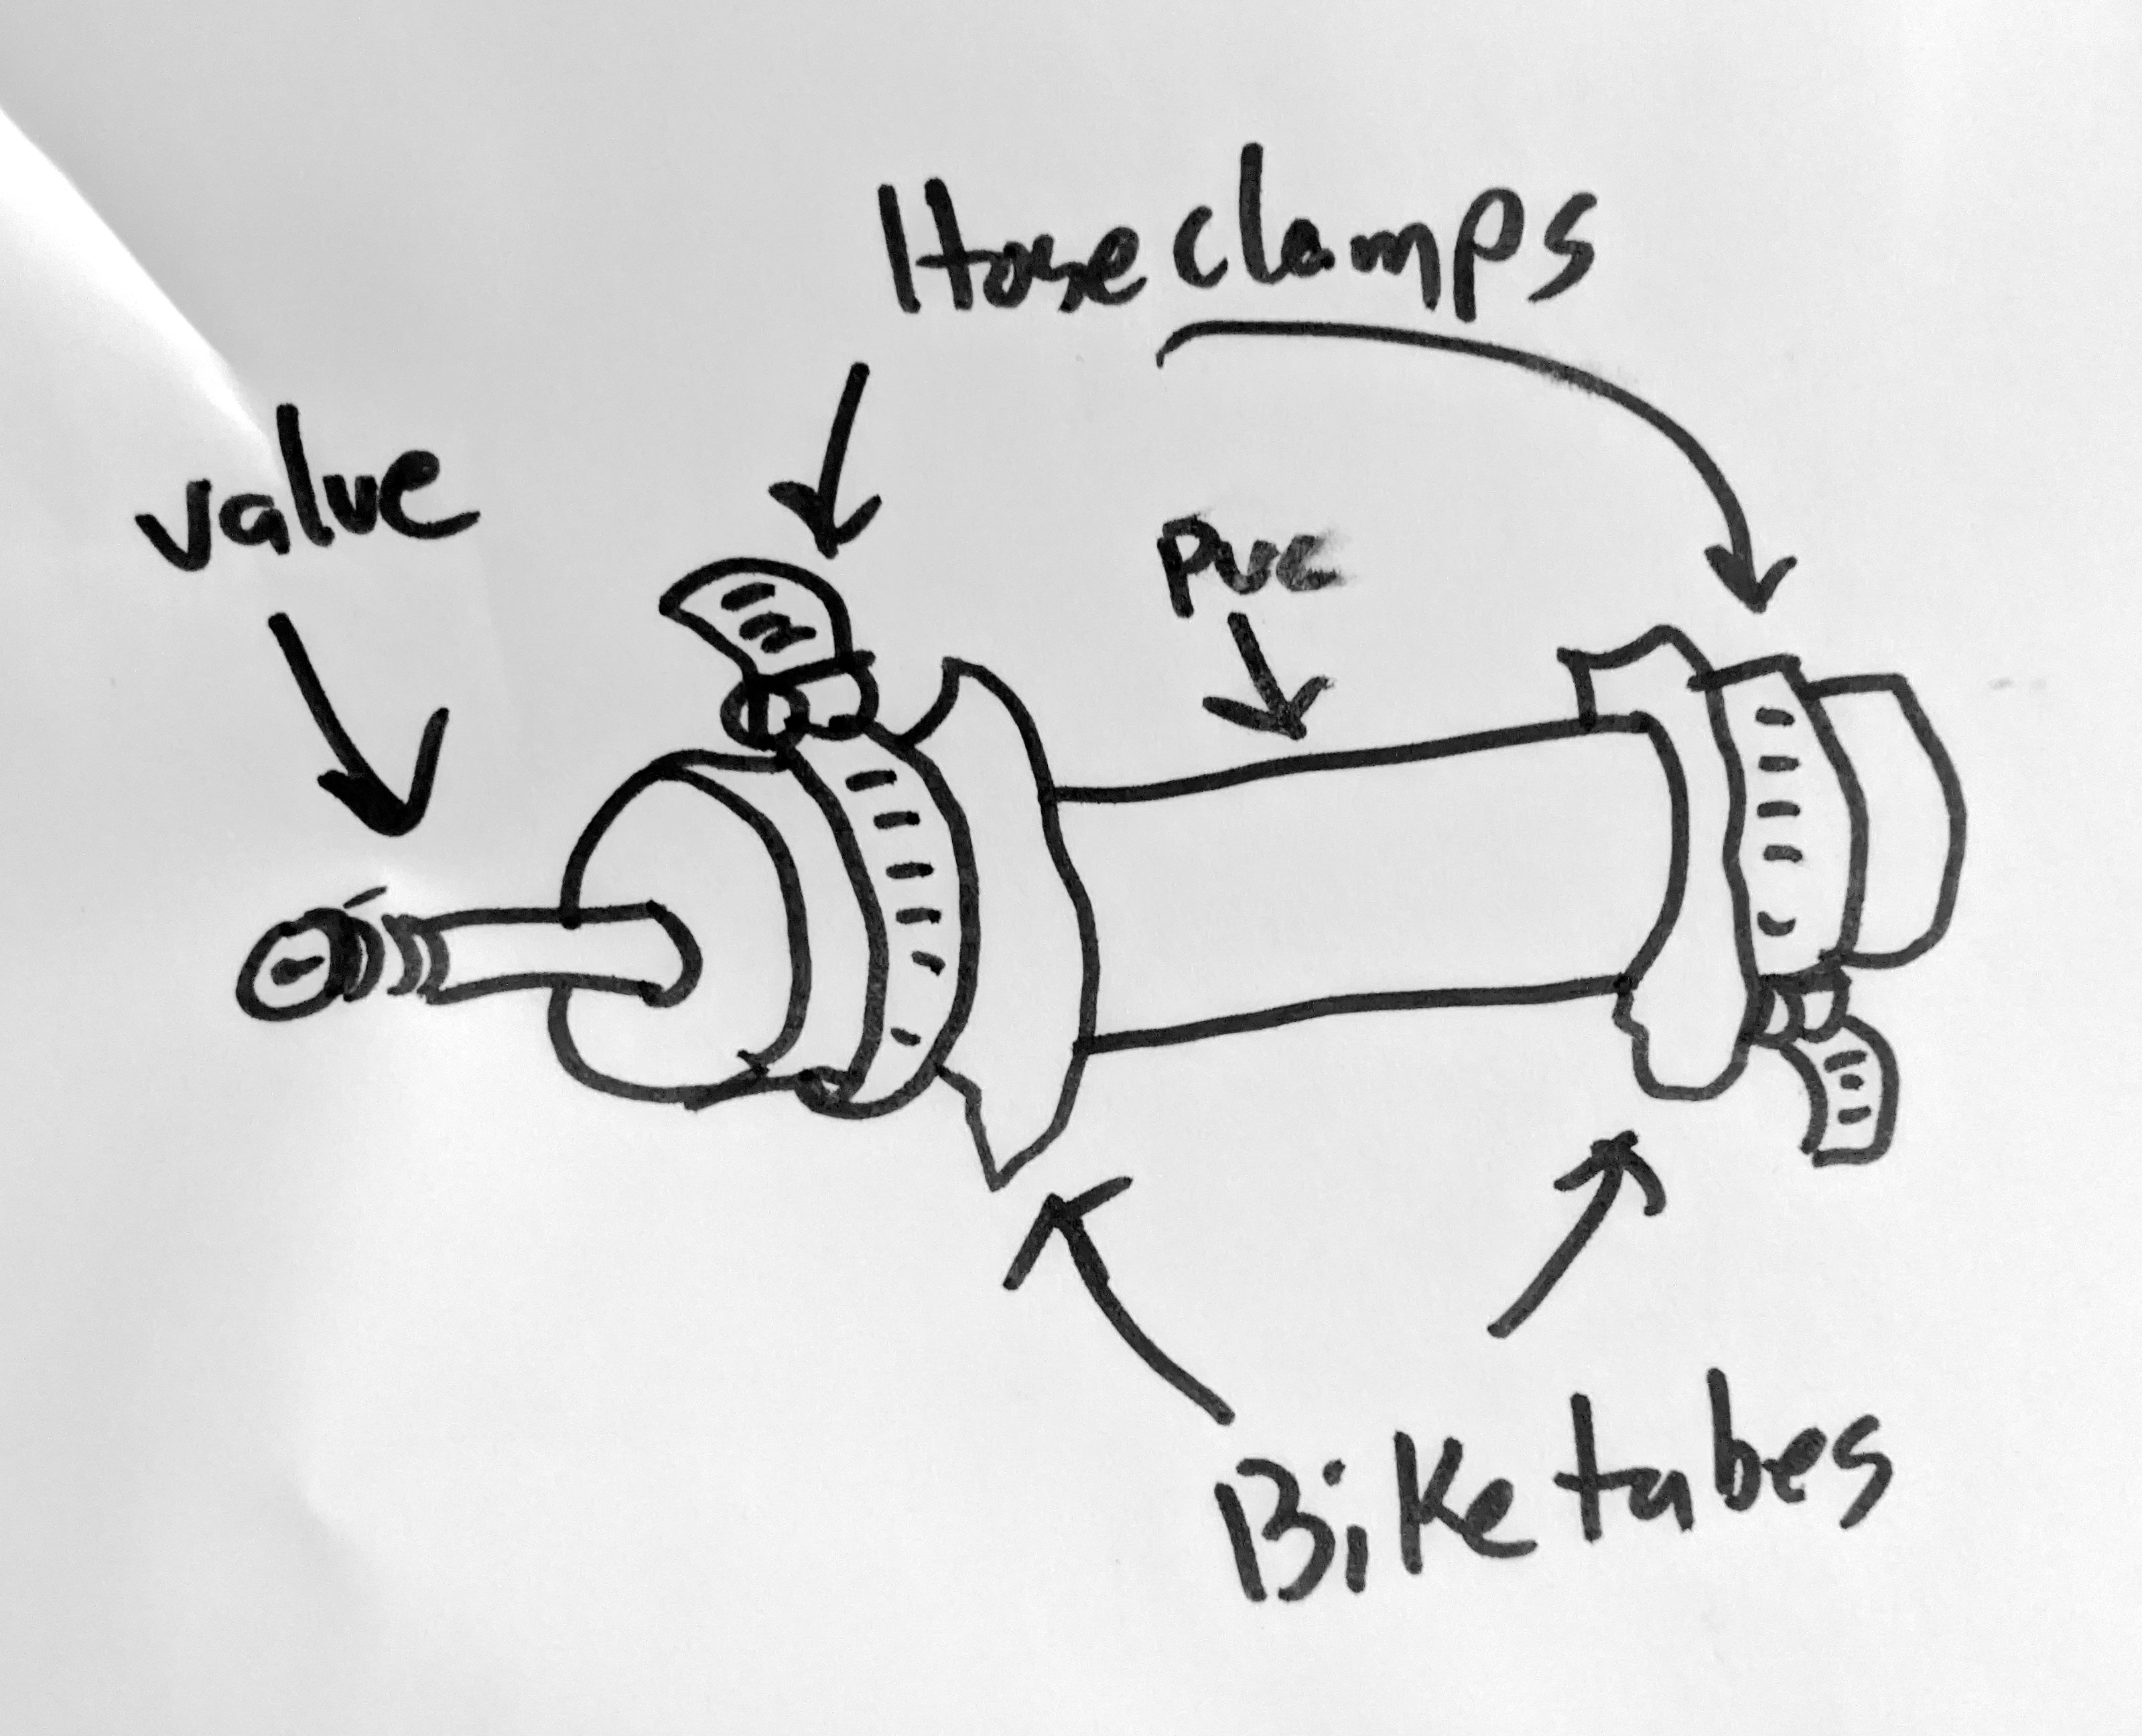 Hose clamps
valve
PVC
Bike tubes